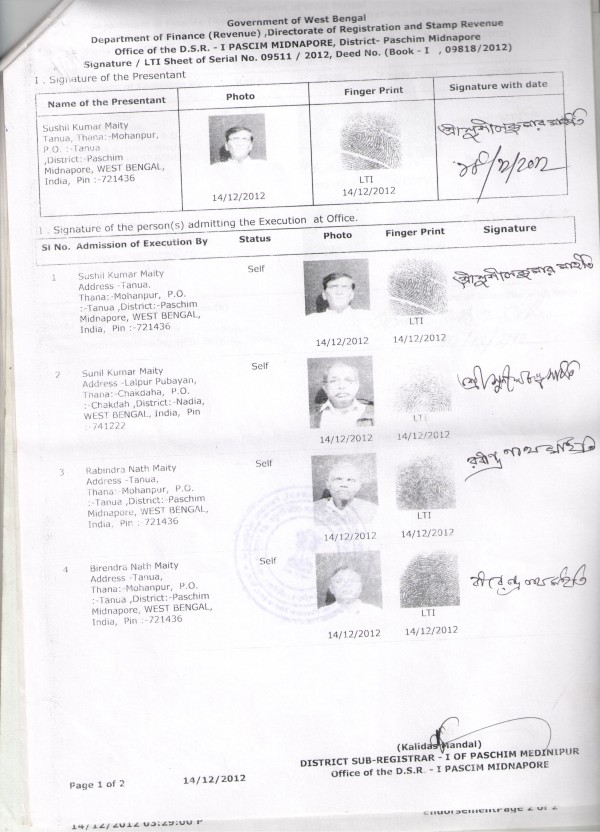 Government of West Bengal
Department of Finance (Revenue) ,Directorate of Registration and Stamp Revenue
Office of the D.S.R. - I PASCIM MIDNAPORE, District- Paschim Midnapore
Signature / LTI Sheet of Serial No. 09511 / 2012, Deed No. (Book - I , 09818/2012)
I . Signature of the Presentant
Name of the Presentant Photo Finger Print Signature with date
Sushil Kumar Maity
Tanua, Thana:-Mohanpur,
P.O. :-Tanua
,District:-Paschim
Midnapore, WEST BENGAL,
India, Pin :-721436
14/12/2012
LTI
14/12/2012
শ্রী সুশীল কুমার মাইতি
14/12/2012
I . Signature of the person(s) admitting the Execution at Office.
Sl No. Admission of Execution By Status Photo Finger Print Signature
1 Sushil Kumar Maity Self
Address -Tanua,
Thana:-Mohanpur, P.O.
:-Tanua ,District:-Paschim
Midnapore, WEST BENGAL,
India, Pin :-721436
14/12/2012
LTI
14/12/2012
শ্রী সুশীল কুমার মাইতি
2 Sunil Kumar Maity Self
Address -Lalpur Pubayan,
Thana:-Chakdaha, P.O.
:-Chakdah ,District:-Nadia,
WEST BENGAL, India, Pin
:-741222
14/12/2012
LTI
14/12/2012
3 Rabindra Nath Maity Self
Address -Tanua,
Thana:-Mohanpur, P.O.
:-Tanua ,District:-Paschim
Midnapore, WEST BENGAL,
India, Pin :-721436
14/12/2012
LTI
14/12/2012
রবীন্দ্র নাথ মাইতি
4 Birendra Nath Maity Self
Address -Tanua,
Thana:-Mohanpur, P.O.
:-Tanua ,District:-Paschim
Midnapore, WEST BENGAL,
India, Pin :-721436
14/12/2012
LTI
14/12/2012
বীরেন্দ্র নাথ মাইতি
(Kalidas Mandal)
DISTRICT SUB-REGISTRAR - I OF PASCHIM MEDINIPUR
Office of the D.S.R. - I PASCIM MIDNAPORE
Page 1 of 2 14/12/2012
14/12/2012 03:29:00 P
EndorsementPage 2 of 2